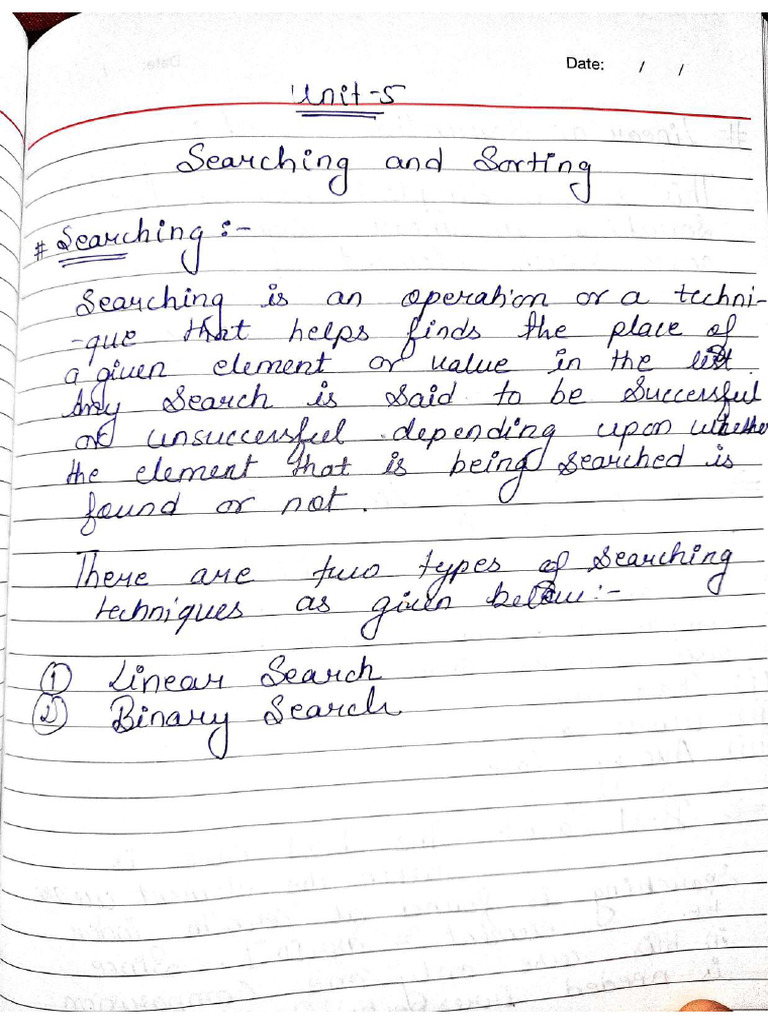 Date: / /
Unit-5
Searching and Sorting
# Searching :-
Searching is an operation or a techni-
-que that helps finds the place of
a given element or value in the list.
Any search is said to be successful
or unsuccessful depending upon whether
the element that is being searched is
found or not.
There are two types of searching
techniques as given below:-
① Linear Search
② Binary Search